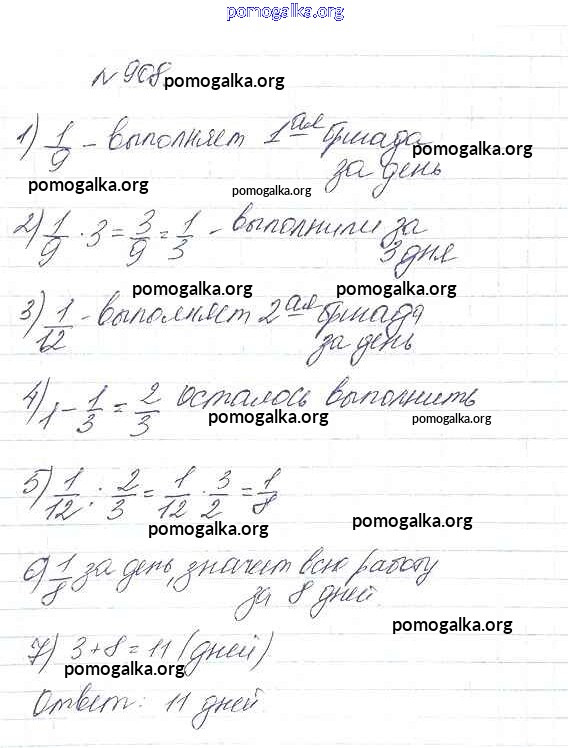 pomogalka.org
№ 908 pomogalka.org
1) 1/9 - выполняет 1ая бригада pomogalka.org
за день
pomogalka.org pomogalka.org
2) 1/9 · 3 = 3/9 = 1/3 - выполнили за
3 дня
pomogalka.org pomogalka.org
3) 1/12 - выполняет 2ая бригада
за день
4) 1 - 1/3 = 2/3 осталось выполнить
pomogalka.org pomogalka.org
5) 1/12 : 2/3 = 1/12 · 3/2 = 1/8
pomogalka.org pomogalka.org
6) 1/8 за день, значит всю работу
за 8 дней.
pomogalka.org
7) 3+8=11 (дней)
pomogalka.org
Ответ: 11 дней